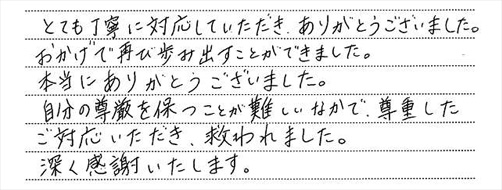 とても丁寧に対応していただき、ありがとうございました。
おかげで再び歩み出すことができました。
本当にありがとうございました。
自分の尊厳を保つことが難しいなかで、尊重した
ご対応いただき、救われました。
深く感謝いたします。